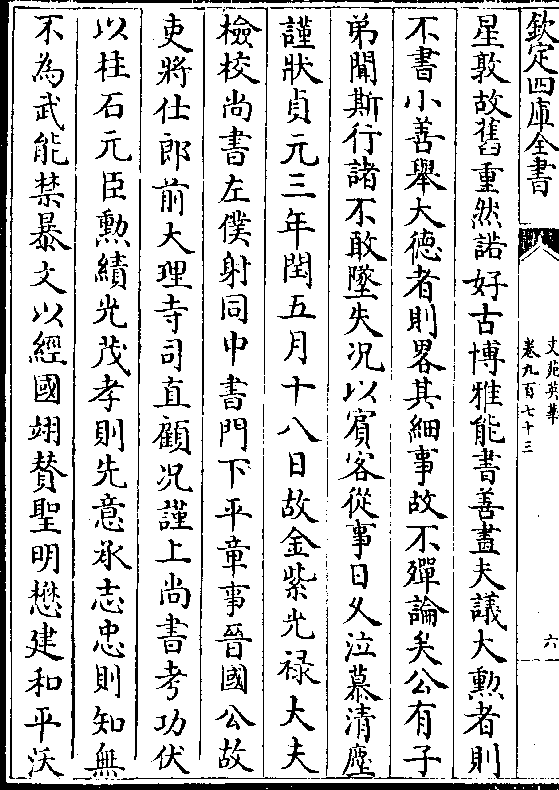 欽定四庫全書
文苑英華
卷九百七十三
六
星敦故舊重然諾好古博雅能書善畫夫議大勲者則
不書小善舉大德者則畧其細事故不殫論矣公有子
弟聞斯行諸不敢墜失况以賓客從事日久泣慕清塵
謹狀貞元三年閏五月十八日故金紫光禄大夫
檢校尚書左僕射同中書門下平章事晉國公故
吏將仕郎前大理寺司直顧况謹上尚書考功伏
以柱石元臣勲績光茂孝則先意承志忠則知無
不為武能禁暴文以經國翊賛聖明懋建和平沃